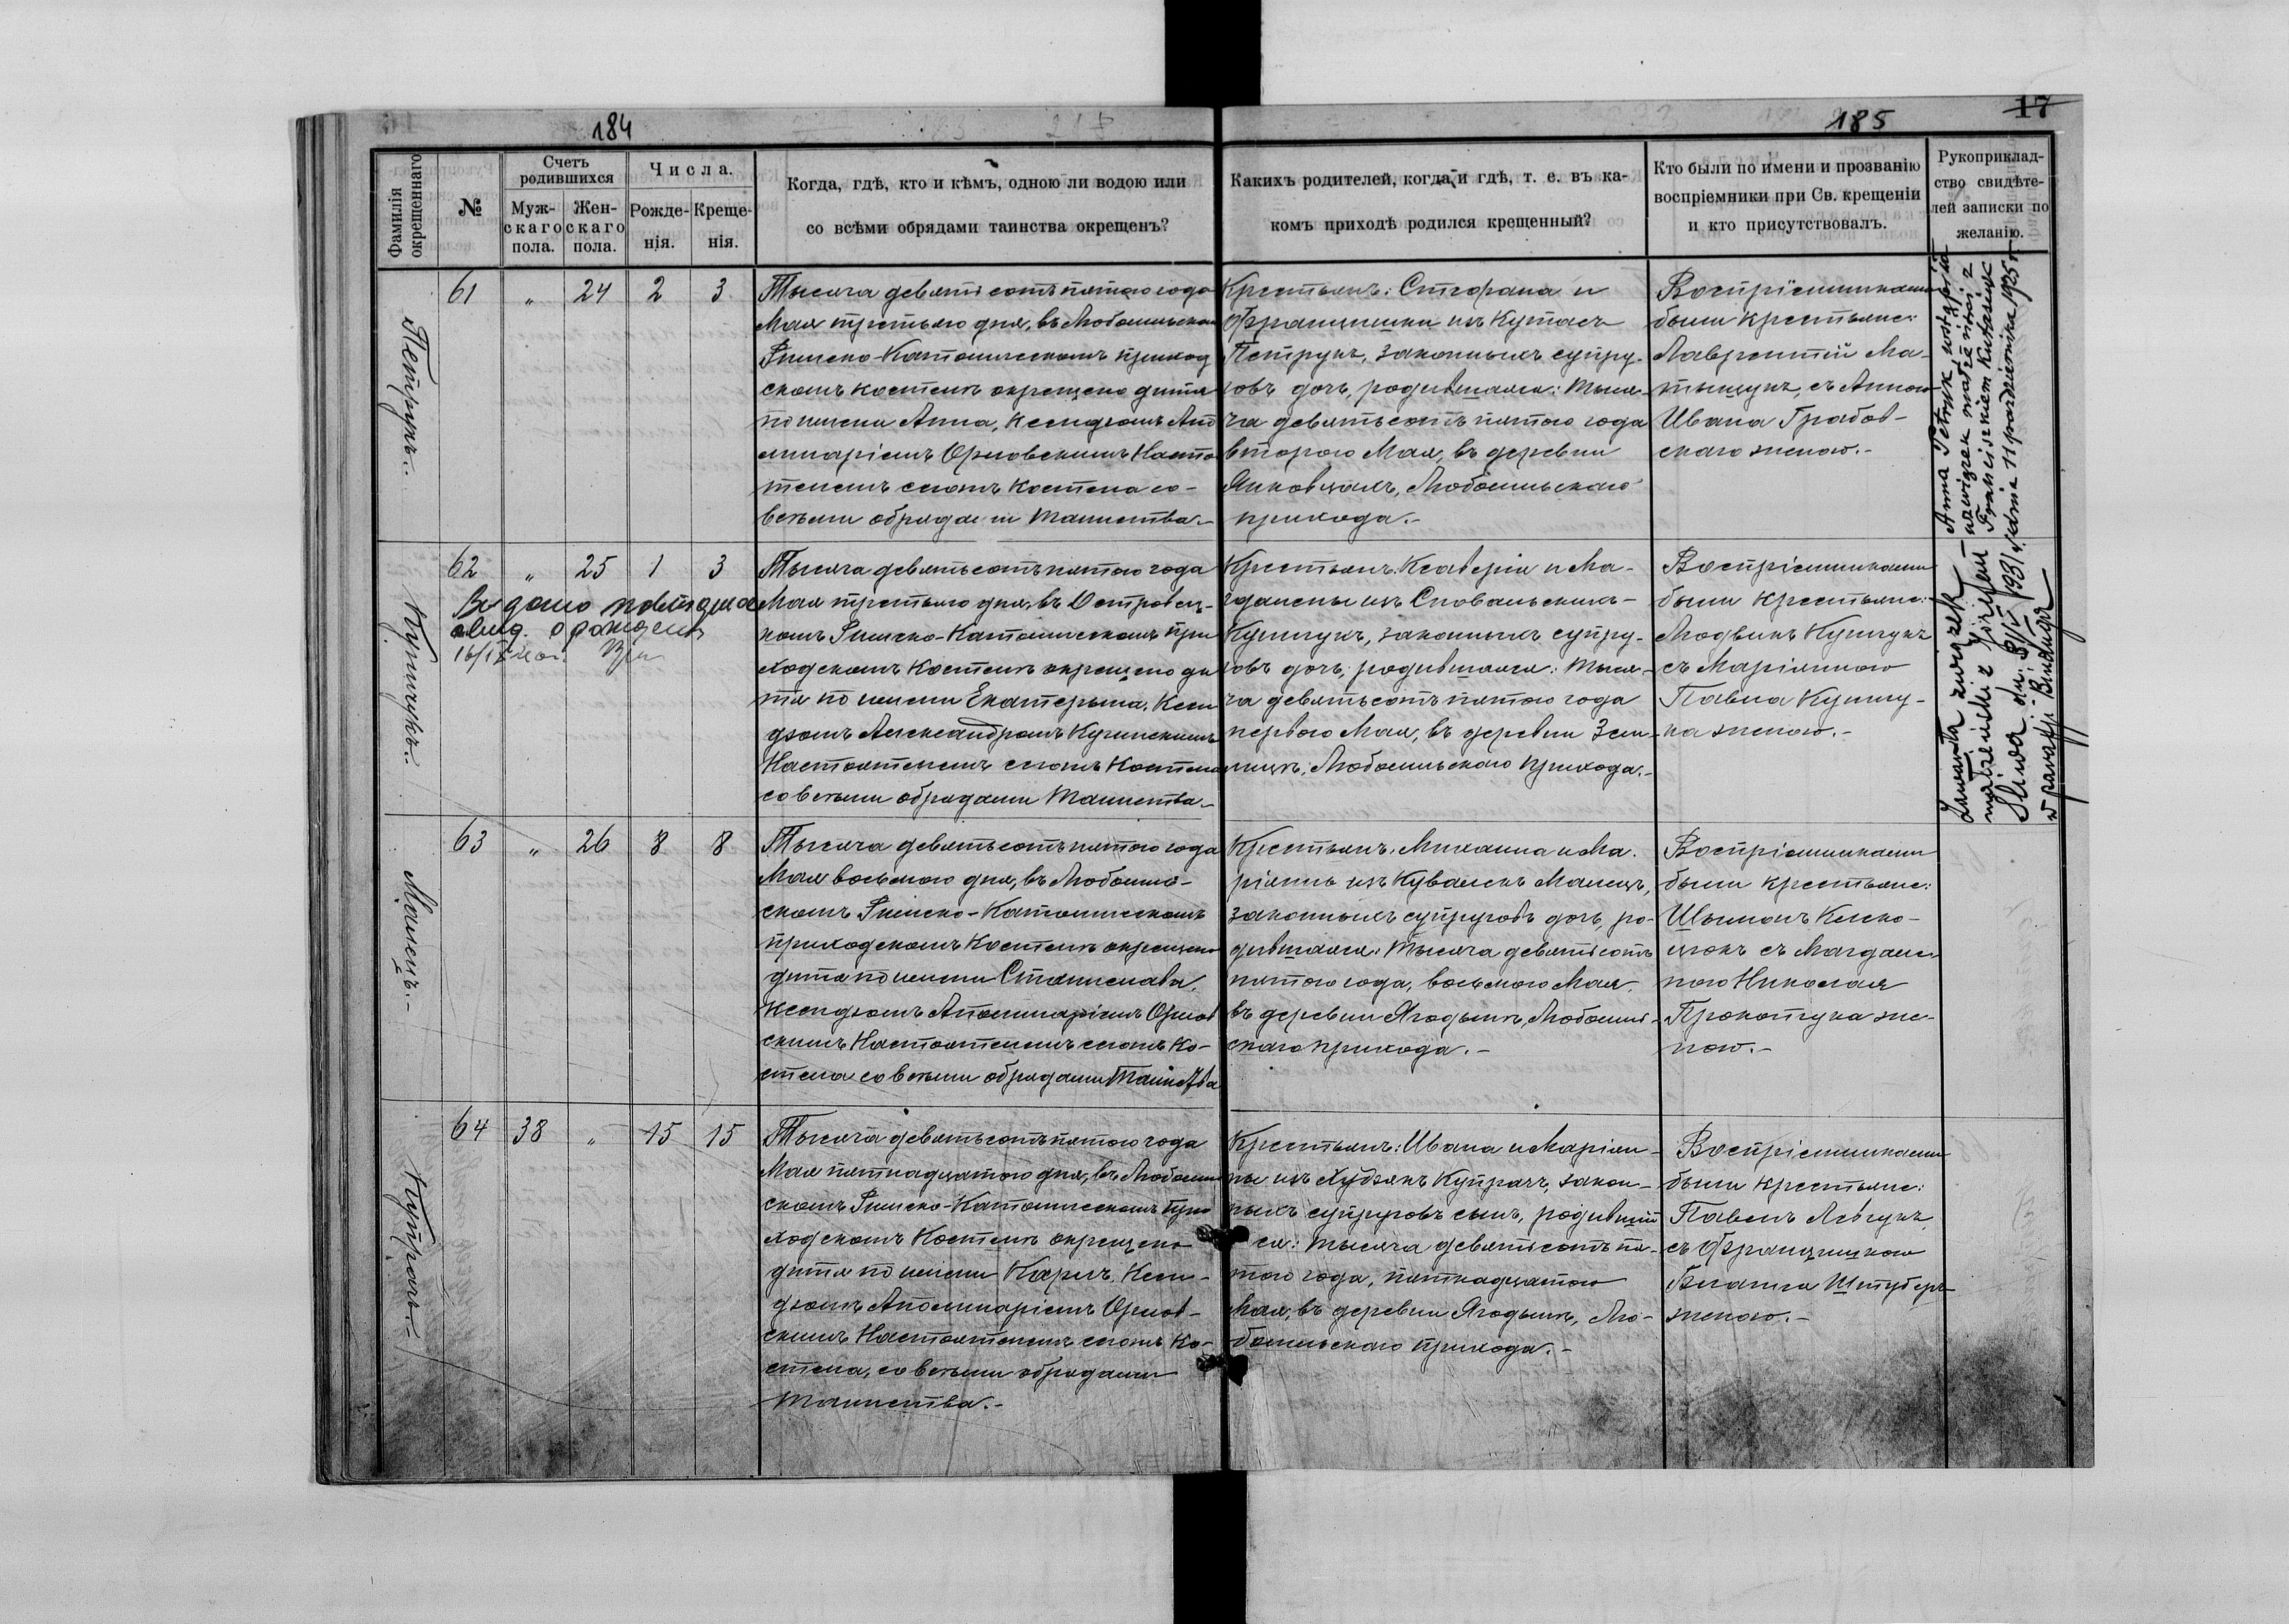 184
185
17
Фамилія окрещеннаго
№
Счетъ родившихся
Муж-скаго пола.
Жен-скаго пола.
Числа.
Рожде-нія.
Креще-нія.
Когда, гдѣ, кто и кѣмъ, одною ли водою или
со всѣми обрядами таинства окрещенъ?
Какихъ родителей, когда и гдѣ, т. е. въ ка-
комъ приходѣ родился крещенный?
Кто были по имени и прозванію
воспріемники при Св. крещеніи
и кто присутствовалъ.
Рукоприклад-
ство свидѣте-
лей записки по
желанію.
Петрукъ.
61 " 24 2 3
Тысяча девятьсотъ пятаго года
Мая третьяго дня, въ Любомльском
Римско-Католическомъ приход
скомъ костелѣ окрещено дитя
по имени Анна, Ксендзомъ Апо
линаріемъ Орловскимъ Насто
телемъ сего костела со
всѣми обрядами таинства.
Крестьянъ: Стефана и
Францишки изъ
Петрукъ, законныхъ супру-
говъ дочь, родившаяся: тыся-
ча девятьсотъ пятаго года
второго Мая, въ деревни
Янковцахъ, Любомльскаго
прихода.
Воспріемниками
были крестьяне:
Лаврентій Ма-
тыщукъ, съ Анною
Ивана Грабов-
скаго женою.
Anna Petryk wstąpiła
w związek małżeński z
Franciszkiem
dnia 11 października 1925 r.
Кушнукъ.
62 " 25 1 3
16/IX
Тысяча девятьсотъ пятаго года
Мая третьяго дня, въ Островец-
комъ Римско-Католическомъ при
ходскомъ костелѣ окрещено ди
тя по имени Екатерина, Ксен
дзомъ Александромъ
Настоятелемъ сего костела
со всѣми обрядами таинства.
Крестьянъ: Ксаверія и Ма-
гдалены изъ
законныхъ супру-
говъ дочь, родившаяся: тыся-
ча девятьсотъ пятаго года
первого Мая, въ деревни Зем-
лицѣ, Любомльскаго прихода.
Воспріемниками
были крестьяне:
Людвикъ
съ Маріянною
Павла
женою.
Zawarła związek
małżeński z Józefem
Śliwa dn. 8/V 1931
w parafji Bindugа
Малецъ.
63 " 26 8 8
Тысяча девятьсотъ пятаго года
Мая восьмого дня, въ Любомль-
скомъ Римско-Католическомъ
приходскомъ костелѣ окрещено
дитя по имени Станислава,
Ксендзомъ Аполинаріемъ Орлов
скимъ Настоятелемъ сего ко-
стела со всѣми обрядами таинства
Крестьянъ: Михаила и Ма-
ріянны изъ Малецъ,
законныхъ супруговъ дочь, ро-
дившаяся: тысяча девятьсотъ
пятаго года, восьмого Мая,
въ деревни Ягодынѣ, Любомль-
скаго прихода.
Воспріемниками
были крестьяне:
съ Магдале-
ною Николая
Прокопчука же-
ною.
Купрачъ.
64 38 " 15 15
Тысяча девятьсотъ пятаго года
Мая пятнадцатого дня, въ Любомль
скомъ Римско-Католическомъ при
ходскомъ костелѣ окрещено
дитя по имени Карлъ, Ксен-
дзомъ Аполинаріемъ Орлов-
скимъ Настоятелемъ сего ко-
стела, со всѣми обрядами
таинства.
Крестьянъ: Ивана и Маріян-
ны изъ Купрачъ, закон-
ныхъ супруговъ сынъ, родивший
ся: тысяча девятьсотъ пя-
таго года, пятнадцатого
Мая, въ деревни Ягодынѣ, Лю-
бомльскаго прихода.
Воспріемниками
были крестьяне:
Павелъ Левчукъ
съ Францишкою
женою.